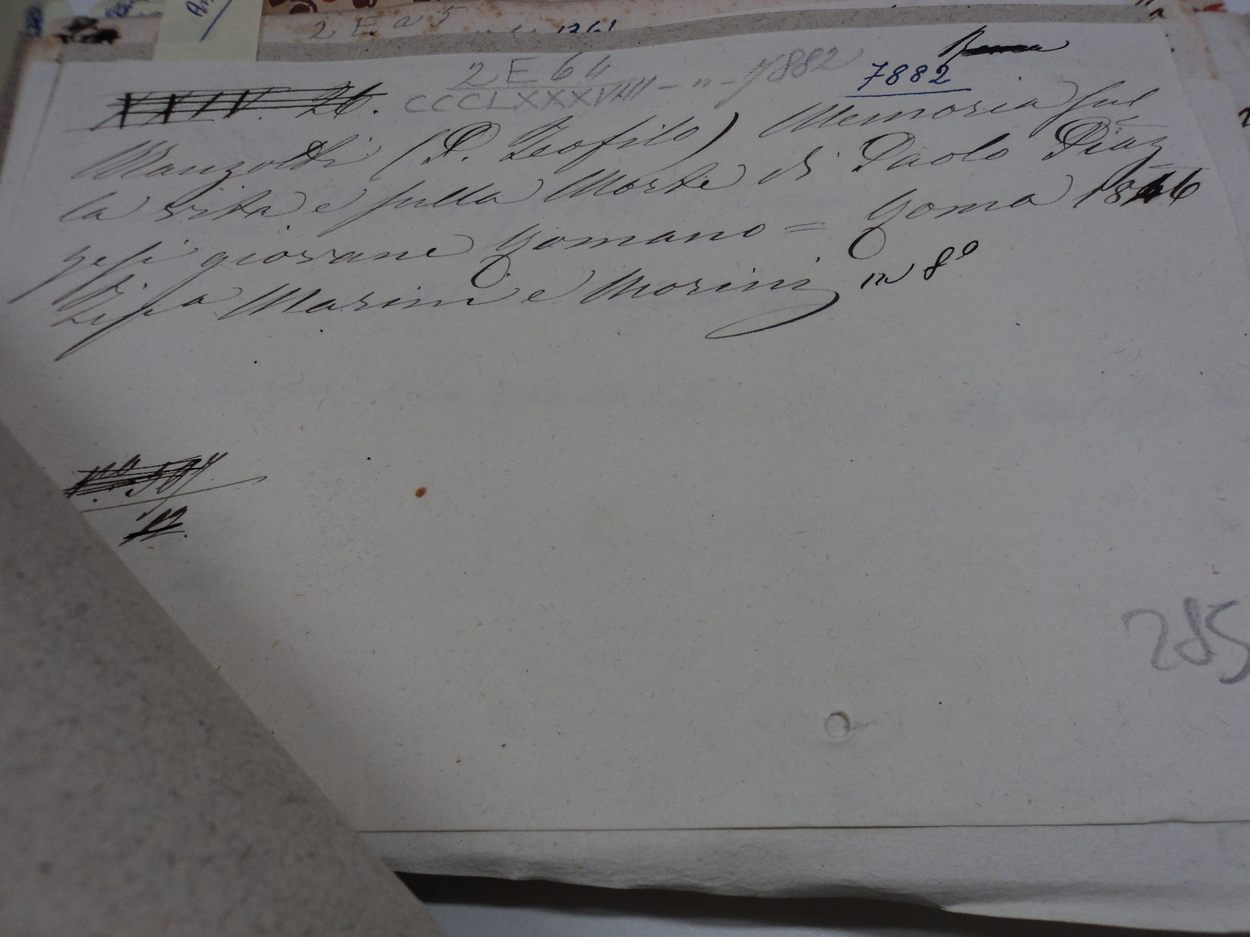 2 E a 5
2 E 64
CCCLXXXVIIII - n - 7882
7882
XXIV. 26.
Manzotti (P. Teofilo) Memoria sul
la vita e sulla Morte di Paolo Diaz
giovane Romano = Roma 1846
Tipa Marini e Morini in 8º
12
285